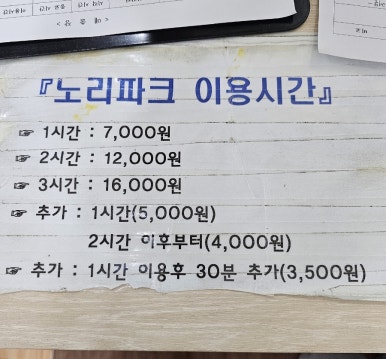 『노리파크 이용시간』
☞ 1시간 : 7,000원
☞ 2시간 : 12,000원
☞ 3시간 : 16,000원
☞ 추가 : 1시간(5,000원)
2시간 이후부터(4,000원)
☞ 추가 : 1시간 이용후 30분 추가(3,500원)